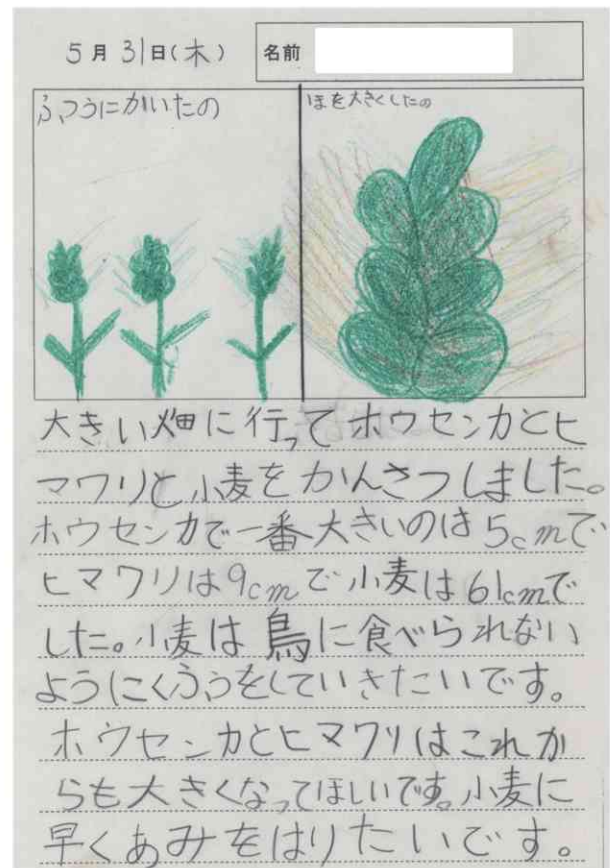 5月31日(木)
名前
ふつうにかいたの
ほを大きくしたの
大きい畑に行ってホウセンカとヒ
マワリと小麦をかんさつしました。
ホウセンカで一番大きいのは5cmで
ヒマワリは9cmで小麦は61cmで
した。小麦は鳥に食べられない
ようにくふうをしていきたいです。
ホウセンカとヒマワリはこれか
らも大きくなってほしいです。小麦に
早くあみをはりたいです。